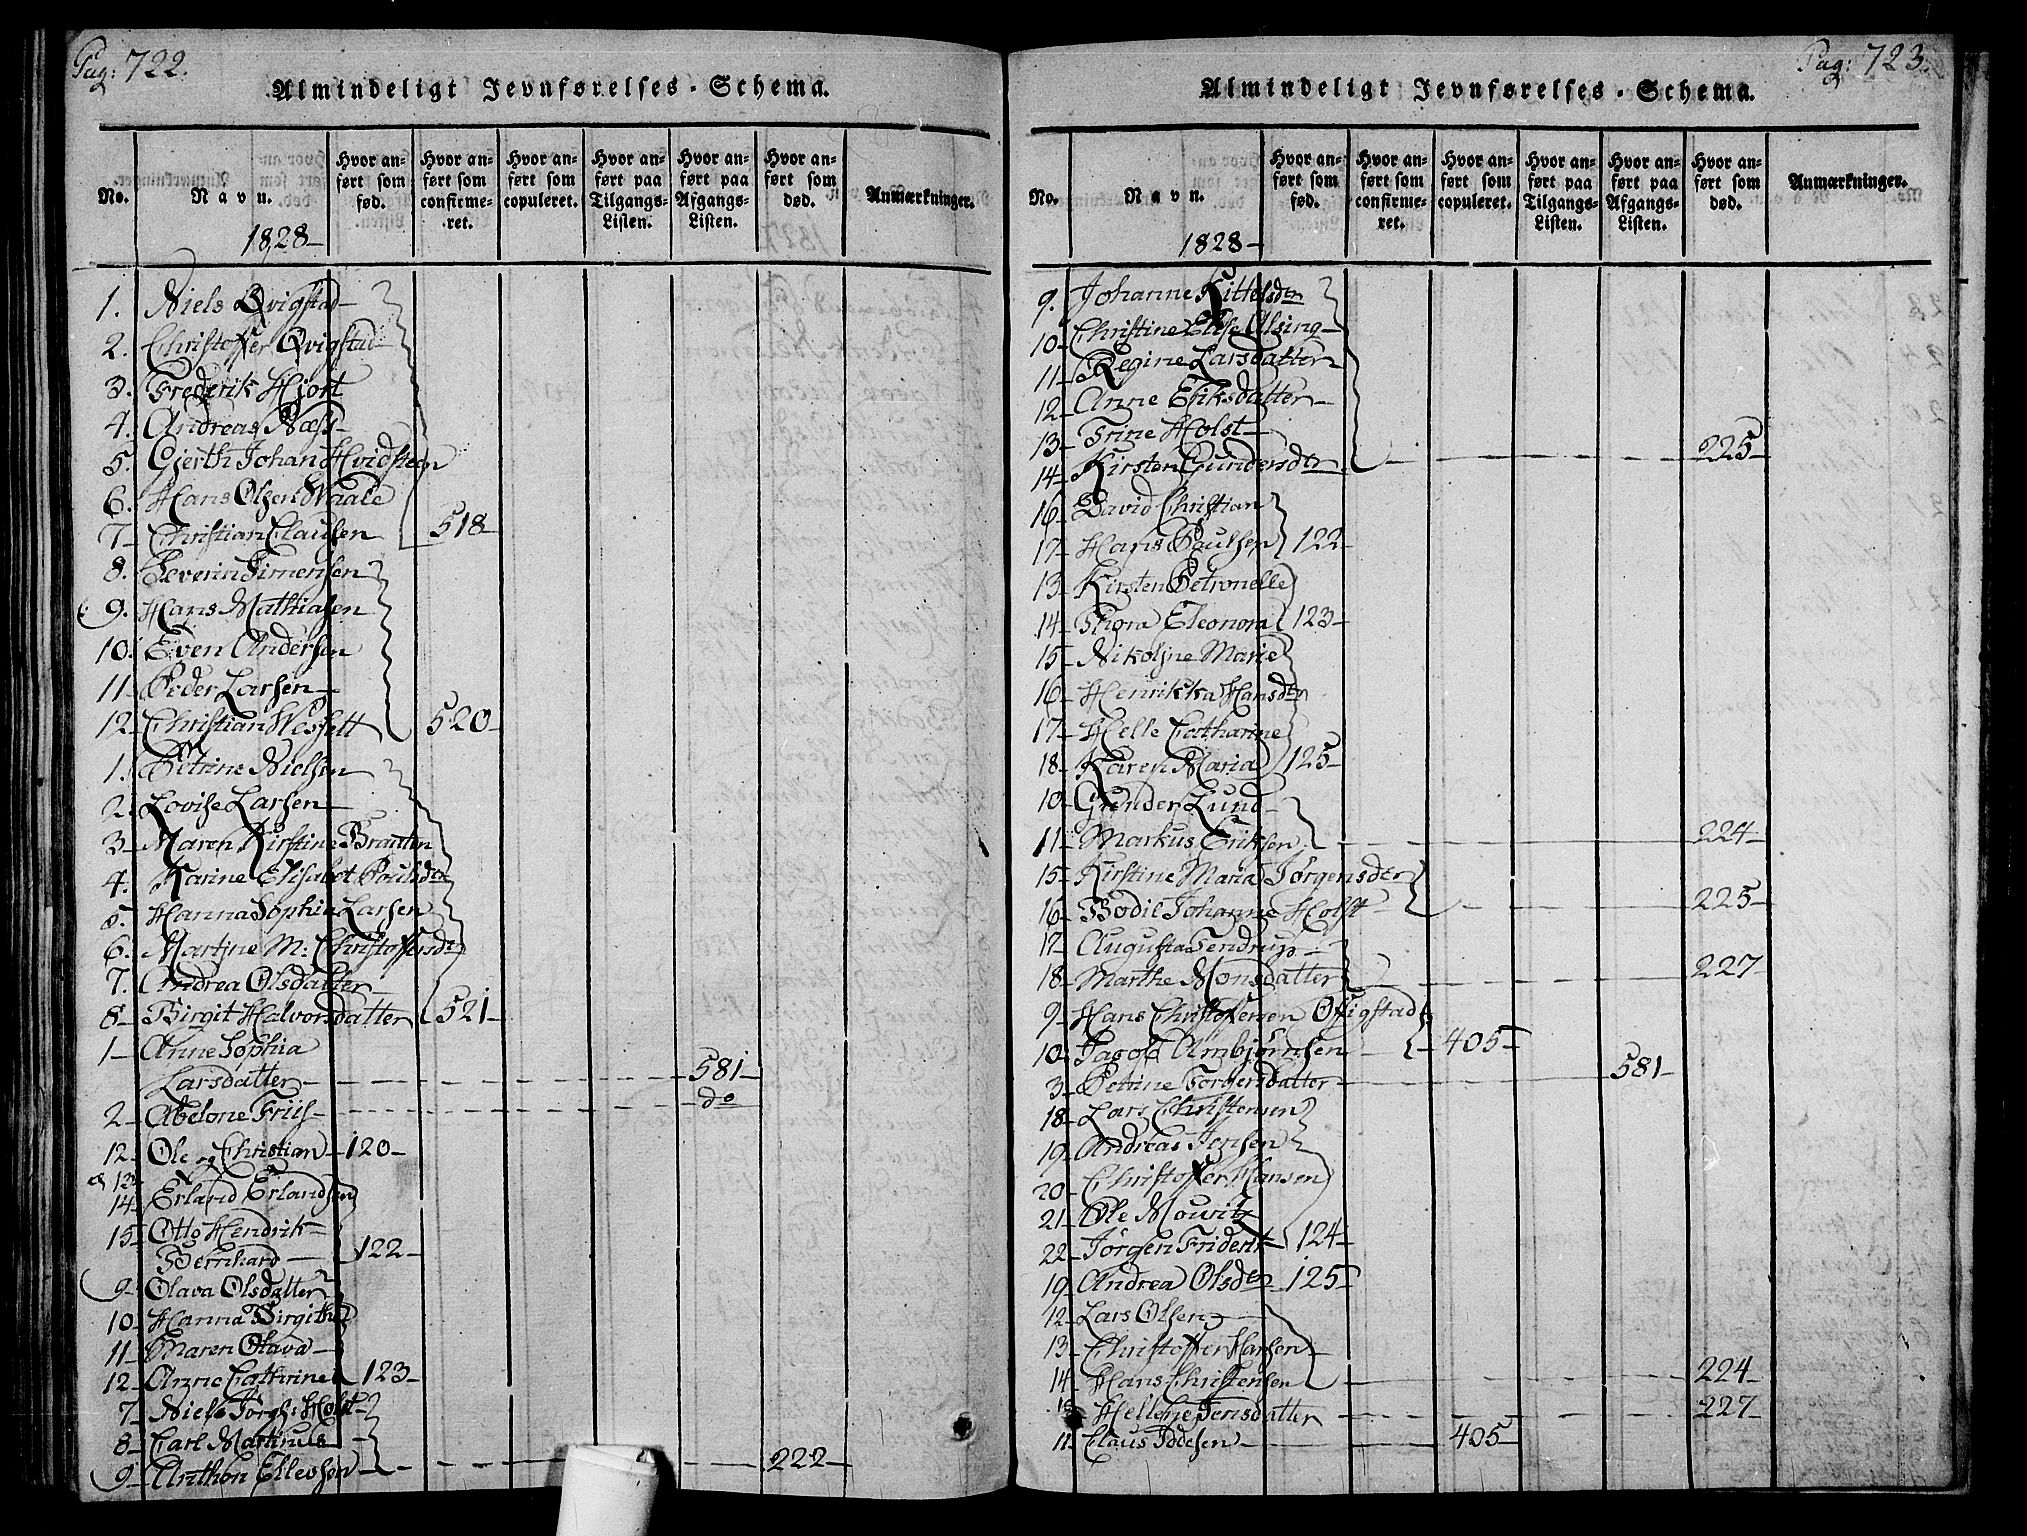 Pag: 722.
Almindeligt Jevnførelses-Schema.
No.
Navn.
Hvor anført som fød.
Hvor anført som confirmeret.
Hvor anført som copuleret.
Hvor anført paa Tilgangs-Listen.
Hvor anført paa Afgangs-Listen.
Hvor anført som død.
Anmærkninger.
1828-
1. Niels Qvigstad-
2. Christoffer Qvigstad-
3. Frederik Hjort
4. Andreas Næss-
5. Gjerth Johan Hvidsteen
6. Hans Olsen Waale
7- Christian Clausen 518-
8. Severin Simensen
9. Hans Mathiasen
10. Even Andersen
11- Peder Larsen-
12- Christian Wesseltt 520-
1. Petrine Nielsen
2. Lovise Larsen-
3- Maren Kirstine Braatten
4. Karine Elisabet Poulsda
5. Hanna Sophia Larsen
6. Martine M: Christoffersdt
7. Andrea Olsdatter-
8- Birgit Halvorsdatter 521-
1- Anne Sophia
Larsdatter - 581-
2- Abelone Friis- do
12- Ole og Christian -120-
& 13-
14- Erland Erlandsen
15- Otto Hendrik-
Bernhard- 122-
9- Olava Olsdatter-
10- Hanna Birgithe
11- Maren Olava-
12- Anne Cathrine 123-
7- Niels Jørgs: Holst-
8- Carl Martinus
9- Anthon Ellevsen - 222-
Pag: 723.
Almindeligt Jevnførelses-Schema.
No.
Navn.
Hvor anført som fød.
Hvor anført som confirmeret.
Hvor anført som copuleret.
Hvor anført paa Tilgangs-Listen.
Hvor anført paa Afgangs-Listen.
Hvor anført som død.
Anmærkninger.
1828-
9. Johanne Kittelsdtr
10- Christine Elise Olsing-
11- Regine Larsdatter-
12- Anne Eriksdatter-
13- Trine Holst-
14- Kirsten Gundersdtr - 225-
16- David Christian
17- Hans Paulsen 122-
13- Kirsten Petronelle
14- Thora Eleonora 123-
15- Nikoline Marie
16- Henrikka Hansdtr
17- Helle Catharine
18- Karen Maria 125-
10- Gunder Lund-
11- Markus Eriksen - 224-
15- Kirstine Maria Jørgensdtr
16- Bodil Johanne Holst - 225-
17- Augusta Tendrup-
18- Marthe Monsdatter - 227-
9- Hans Christoffersen Qvigstad
10- Jagob Arnbjørnsen - 405-
3- Petrine Torgersdatter - 581-
18- Lars Christensen
19- Andreas Jensen
20- Christoffer Hansen
21- Ole Mowitz
22- Jørgen Friderik 124-
19- Andrea Olsdtr 125-
12- Lars Olsen-
13- Christoffer Hansen-
14- Hans Christensen - 224-
Hellene Jensdatter - 227-
11. Claus Iddesen - 405-